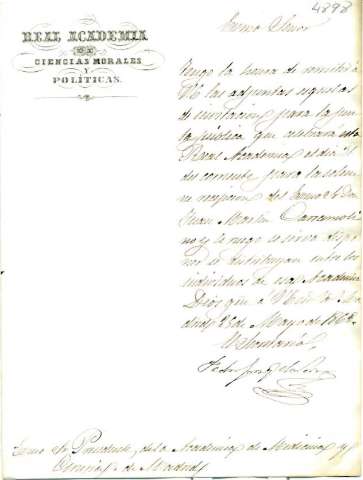 4898
REAL ACADEMIA
DE
CIENCIAS MORALES
Y
POLÍTICAS.
Exmo Señor
Tengo la honra de remitir á
V. E. las adjuntas
de invitacion para la Jun
ta pública que celebrará esta
Real Academia el dia
del corriente para la solem
ne recepcion del Exmo Sr Don
Juan Martin Carramoli
no, y le ruego se sirva dispo
ner se distribuyan entre los
individuos de esa Academia
Dios gue á V. E. Ma
drid 25 de Mayo de
El Secretario
Exmo Sr Presidente de la Academia de Medicina y
Cirugía de Madrid.